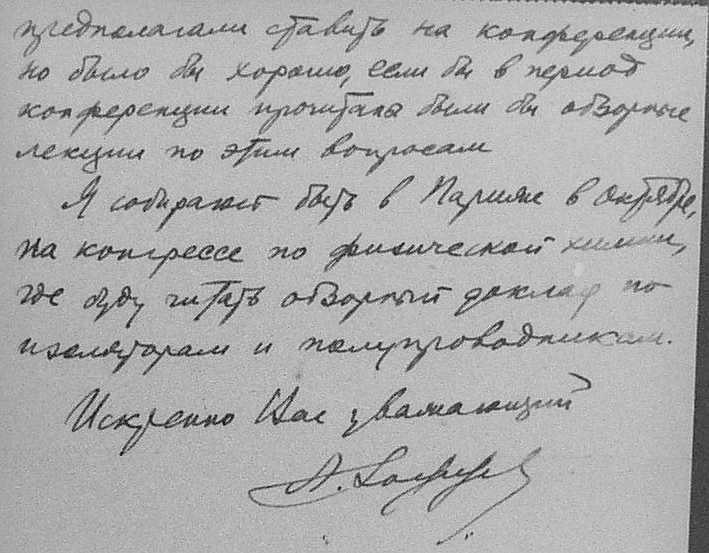 предполагали ставить на конференции,
но было бы хорошо, если бы в период
конференции прочитаны были бы обзорные
лекции по этим вопросам
Я собираюсь быть в Париже в октябре,
на конгрессе по физической химии,
где буду читать обзорный доклад по
изоляторам и полупроводникам.
Искренно Вас уважающий
А.